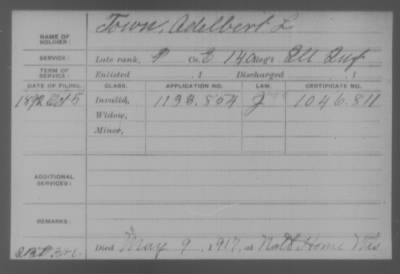 NAME OF SOLDIER: Town, Adelbert L
SERVICE: Late rank, P Co. E 140 Reg't Ill Inf
TERM OF SERVICE: Enlisted , 1 Discharged , 1
DATE OF FILING. CLASS. APPLICATION NO. LAW. CERTIFICATE NO.
1892 Oct 5 Invalid, 1133.854 J 1046.811
Widow,
Minor,
ADDITIONAL SERVICES:
REMARKS:
Died May 9, 1917, at Natl Home Wis